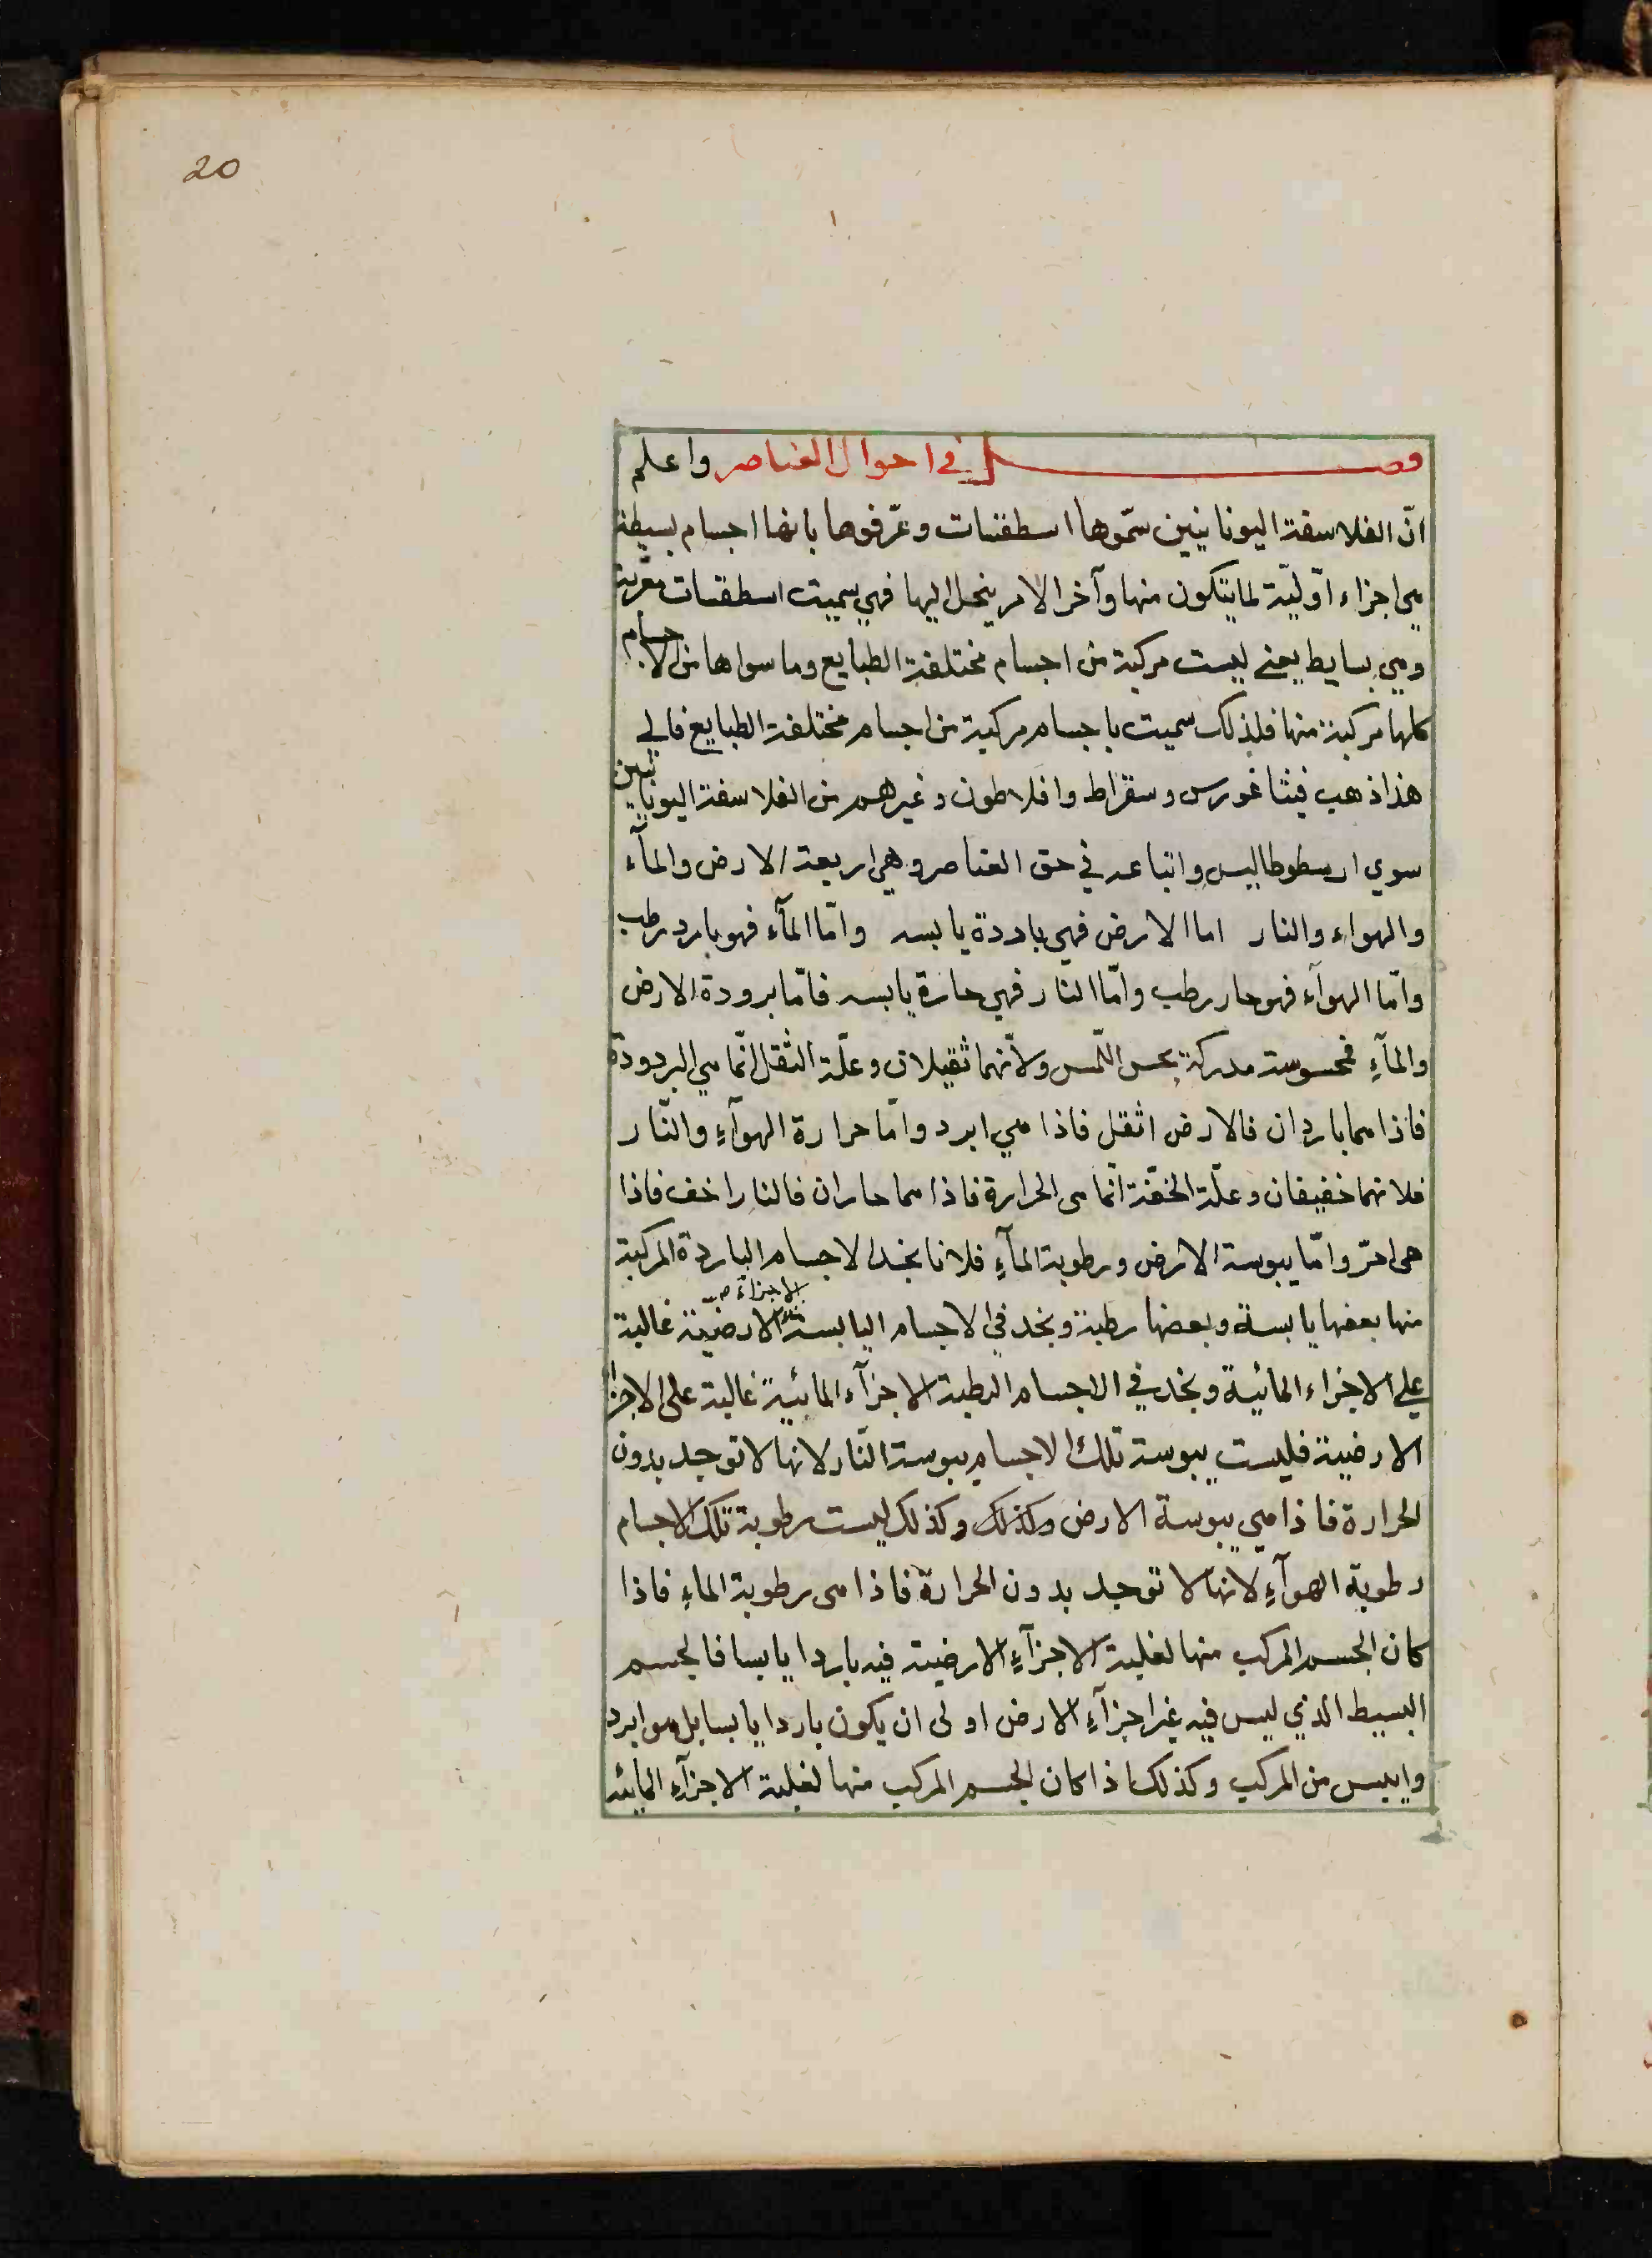 20
فصل في احوال العناصر واعلم
انّ الفلاسفة اليونانيين سمّوها اسطقسات وعرّفوها بانها اجسام بسيطة
هي اجزاء اوّليّة لما يتكون منها وآخر الامر ينحل اليها فهي سميت اسطقسات معربة
وهي بسايط يعني ليست مركبة من اجسام مختلفة الطبايع وما سواها من الاجسام
كلها مركبة منها فلذلك سميت باجسام مركبة من اجسام مختلفة الطبايع فالي
هذا ذهب فيثاغورس وسقراط وافلاطون وغيرهم من الفلاسفة اليونانيين
سوي ارسطوطاليس واتباعه في حق العناصر وهي اربعة الارض والمآء
والهواء والنار اما الارض فهي باردة يابسه وامّا المآء فهو بارد رطب
وامّا الهوآء فهو حار رطب وامّا النار فهي حارة يابسه فامّا برودة الارض
والمآء فمحسوسة مدركة بحس اللّمس ولانّهما ثقيلان وعلّة الثقل انّما هي البرودة
فاذا هما باردان فالارض اثقل فاذا هي ابرد وامّا حرارة الهوآء والنّار
فلانهما خفيفان وعلّة الخفّة انّما هي الحرارة فاذا هما حاران فالنار اخف فاذا
هي احرّ وامّا يبوسة الارض ورطوبة المآء فلانا نجد الاجسام الباردة المركبة
منها بعضها يابسة وبعضها رطبة ونجد في الاجسام اليابسة الاجزاء الارضيّة غالبة
علي الاجزاء المائية ونجد في الاجسام الرطبة الاجزآء المائية غالبة على الاجزا
الارضية فليست يبوسة تلك الاجسام يبوسة النّار لانها لا توجد بدون
الحرارة فاذا هي يبوسة الارض وكذلك وكذلك ليست رطوبة تلك الاجسام
رطوبة الهوآء لانها لا توجد بدون الحرارة فاذا هي رطوبة الماء فاذا
كان الجسم المركب منها لغلبة الاجزآء الارضية فيه باردا يابسا فالجسم
البسيط الذي ليس فيه غير اجزآء الارض اولى ان يكون باردا يابسا بل هو ابرد
وايبس من المركب وكذلك اذا كان الجسم المركب منها لغلبة الاجزآء المائيه